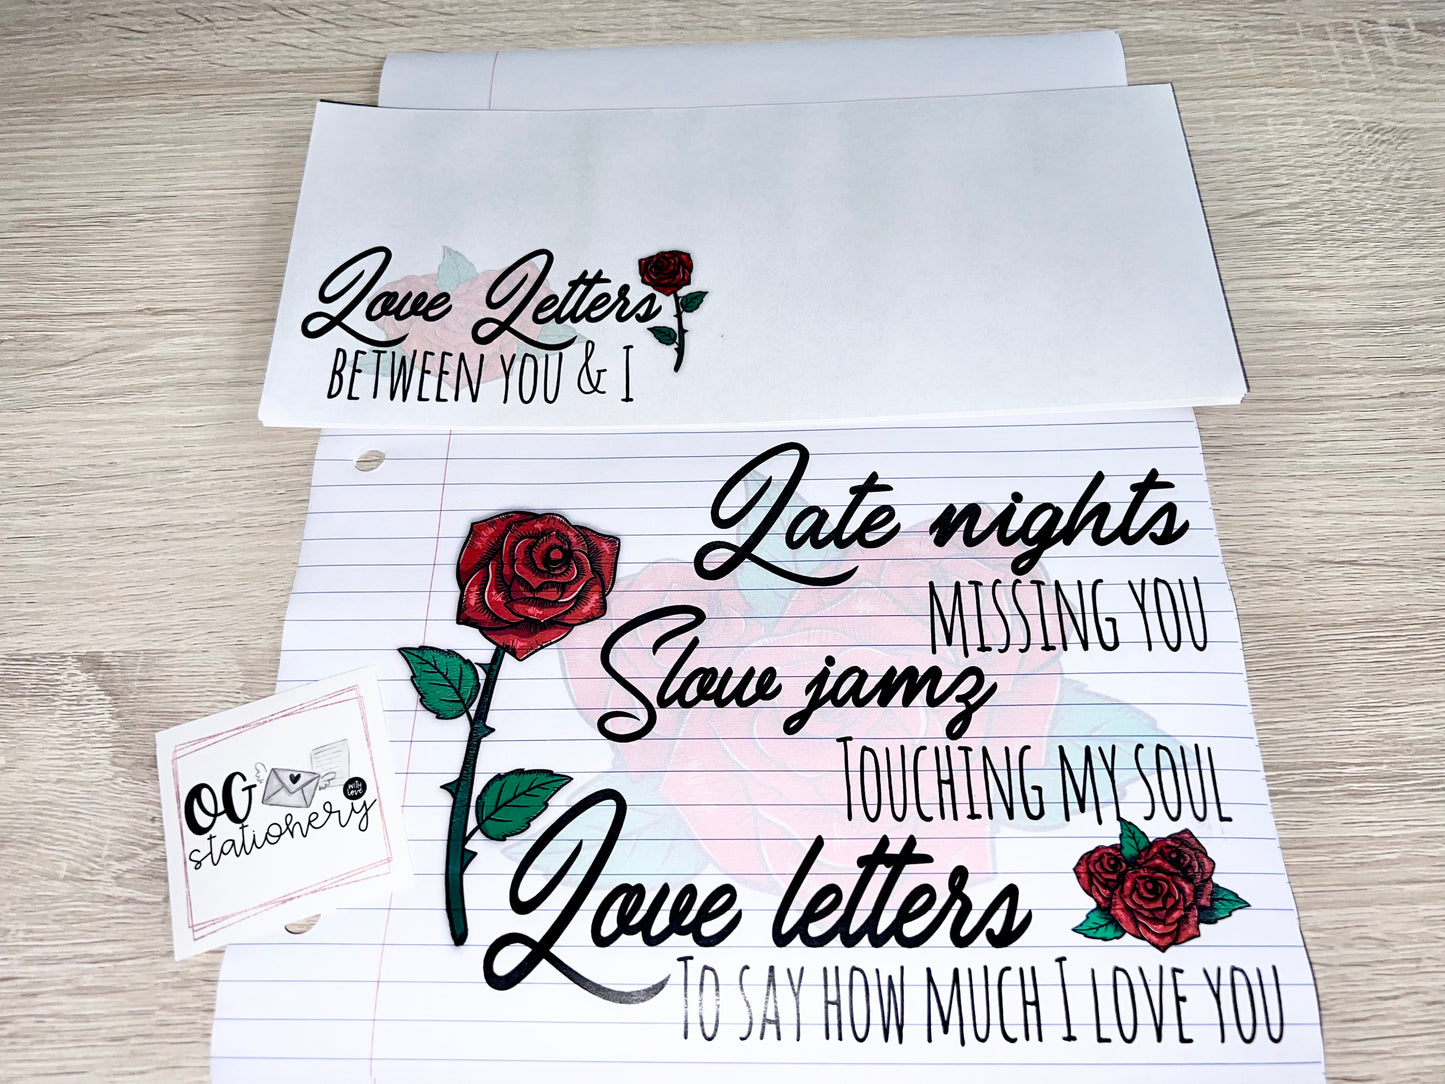 Love Letters
BETWEEN YOU & I
Late nights
MISSING YOU
Slow jamz
TOUCHING MY SOUL
Love letters
TO SAY HOW MUCH I LOVE YOU
OG
WITH
LOVE
stationery